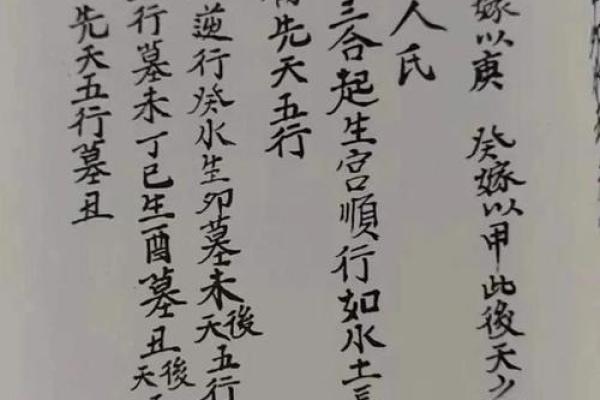 嫁以庚 癸嫁以甲此後天
人氏
三合起生宮順行如水土
先天五行
逆行癸水生卯墓未後天五行
行墓未丁已生酉墓丑後天
先天五行墓丑